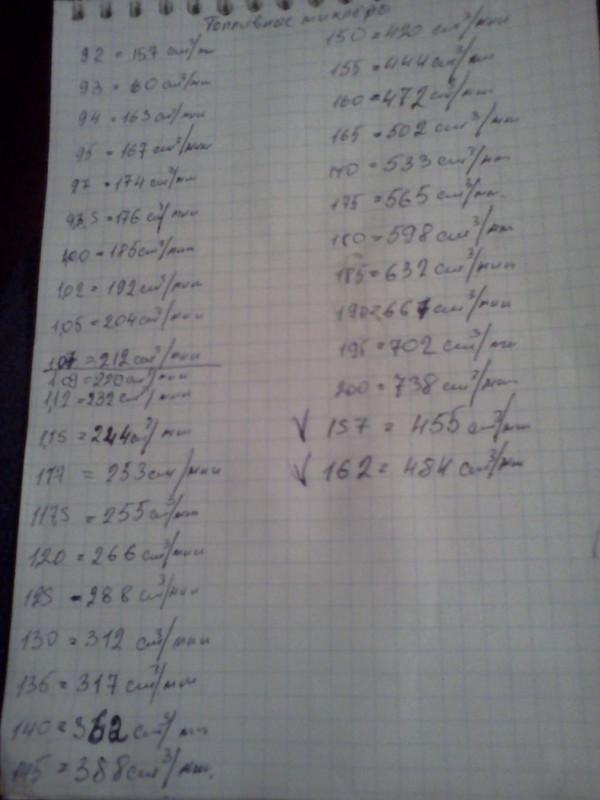 Топливные жиклеры
92 = 157 cm³/m
93 = 60 cm³/мин
94 = 163 cm³/мин
95 = 167 cm³/мин
97 = 174 cm³/мин
97,5 = 176 cm³/мин
1,00 = 185 cm³/мин
1,02 = 192 cm³/мин
1,05 = 204 cm³/мин
1,07 = 212 cm³/мин
1,09 = 220 cm³/мин
1,12 = 232 cm³/мин
1,15 = 244 cm³/мин
117 = 253 см/мин
117,5 = 255 cm³/мин
120 = 266 cm³/мин
125 = 288 cm³/мин
130 = 312 cm³/мин
136 = 317 cm³/мин
140 = 362 cm³/мин
145 = 388 cm³/мин.
150 = 420 cm³/мин
155 = 444 cm³/мин
160 = 472 cm³/мин
165 = 502 cm³/мин
170 = 533 cm³/мин
175 = 565 cm³/мин.
180 = 598 cm³/мин
185 = 632 cm³/мин
190 = 667 cm³/мин
195 = 702 cm³/мин
200 = 738 cm³/мин
√ 157 = 455 cm³/мин
√ 162 = 484 cm³/мин